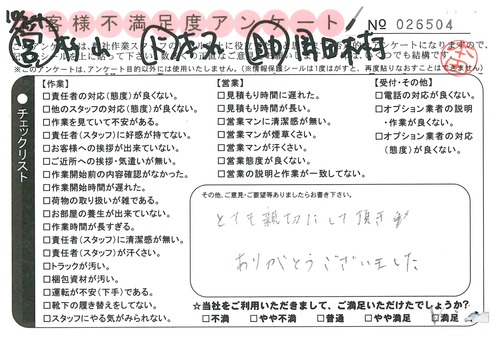 お客様不満足度アンケート
No 026504
このアンケートは、
※このアンケートは、アンケート目的以外には使用いたしません。(※情報保護シールは1度はがすと、再度貼りなおすことはできません)
チェックリスト
【作業】
□責任者の対応(態度)が良くない。
□他のスタッフの対応(態度)が良くない。
□作業を見ていて不安がある。
□責任者(スタッフ)に好感が持てない。
□お客様への挨拶が出来ていない。
□ご近所への挨拶・気遣いが無い。
□作業開始前の内容確認がなかった。
□作業開始時間が遅れた。
□荷物の取り扱いが雑である。
□お部屋の養生が出来ていない。
□作業時間が長すぎる。
□責任者(スタッフ)に清潔感が無い。
□責任者(スタッフ)が汗くさい。
□トラックが汚い。
□梱包資材が汚い。
□運転が不安(下手)である。
□靴下の履き替えをしてない。
□スタッフにやる気がみられない。
【営業】
□見積もり時間に遅れた。
□見積もり時間が長い。
□営業マンに清潔感が無い。
□営業マンが煙草くさい。
□営業マンが汗くさい。
□営業態度が良くない。
□営業の説明と作業が一致してない。
【受付・その他】
□電話の対応が良くない。
□オプション業者の説明・作業が良くない。
□オプション業者の対応(態度)が良くない。
その他、ご意見・ご要望等ありましたらお書き下さい。
とても親切にして頂きまし
ありがとうございました
☆当社をご利用いただきまして、ご満足いただけたでしょうか?
□不満 □やや不満 □普通 □やや満足 □満足